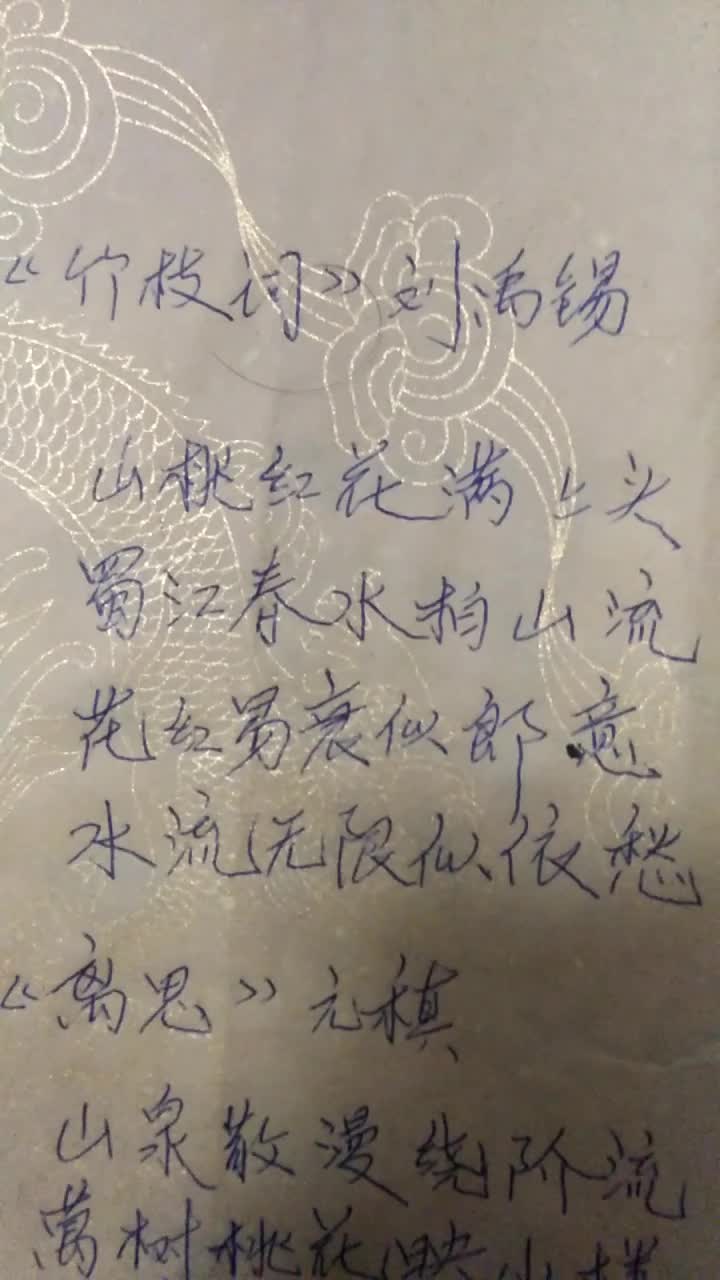 《竹枝词》刘禹锡
山桃红花满上头
蜀江春水拍山流
花红易衰似郎意
水流无限似依愁
《离思》元稹
山泉散漫绕阶流
萬树桃花映小楼